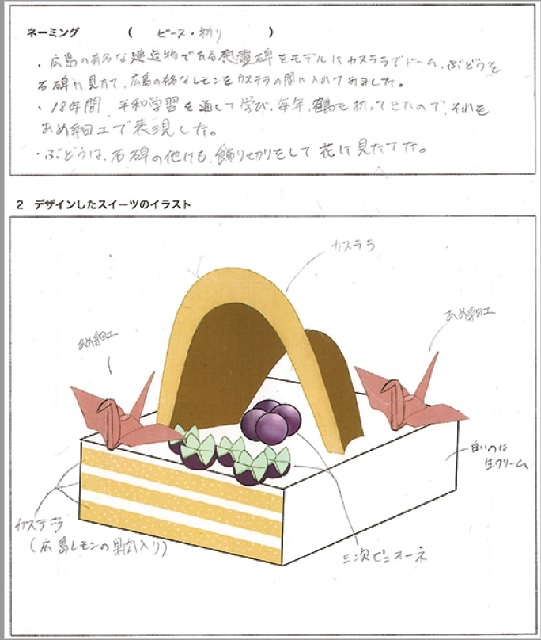 ネーミング ( ピース・祈り )
・広島の有名な建造物である慰霊碑をモデルにカステラでドーム、ぶどうを
石碑に見たて、広島の有名なレモンをカステラの間に入れてみました。
・12年間、平和学習を通して学び、毎年、鶴を折ってきたので、それを
あめ細工で表現した。
・ぶどうは、石碑の他にも、飾り切りをして花に見たてた。
2 デザインしたスイーツのイラスト
カステラ
あめ細工
あめ細工
白いのは
生クリーム
カステラ
(広島レモンの果肉入り)
三次ピオーネ